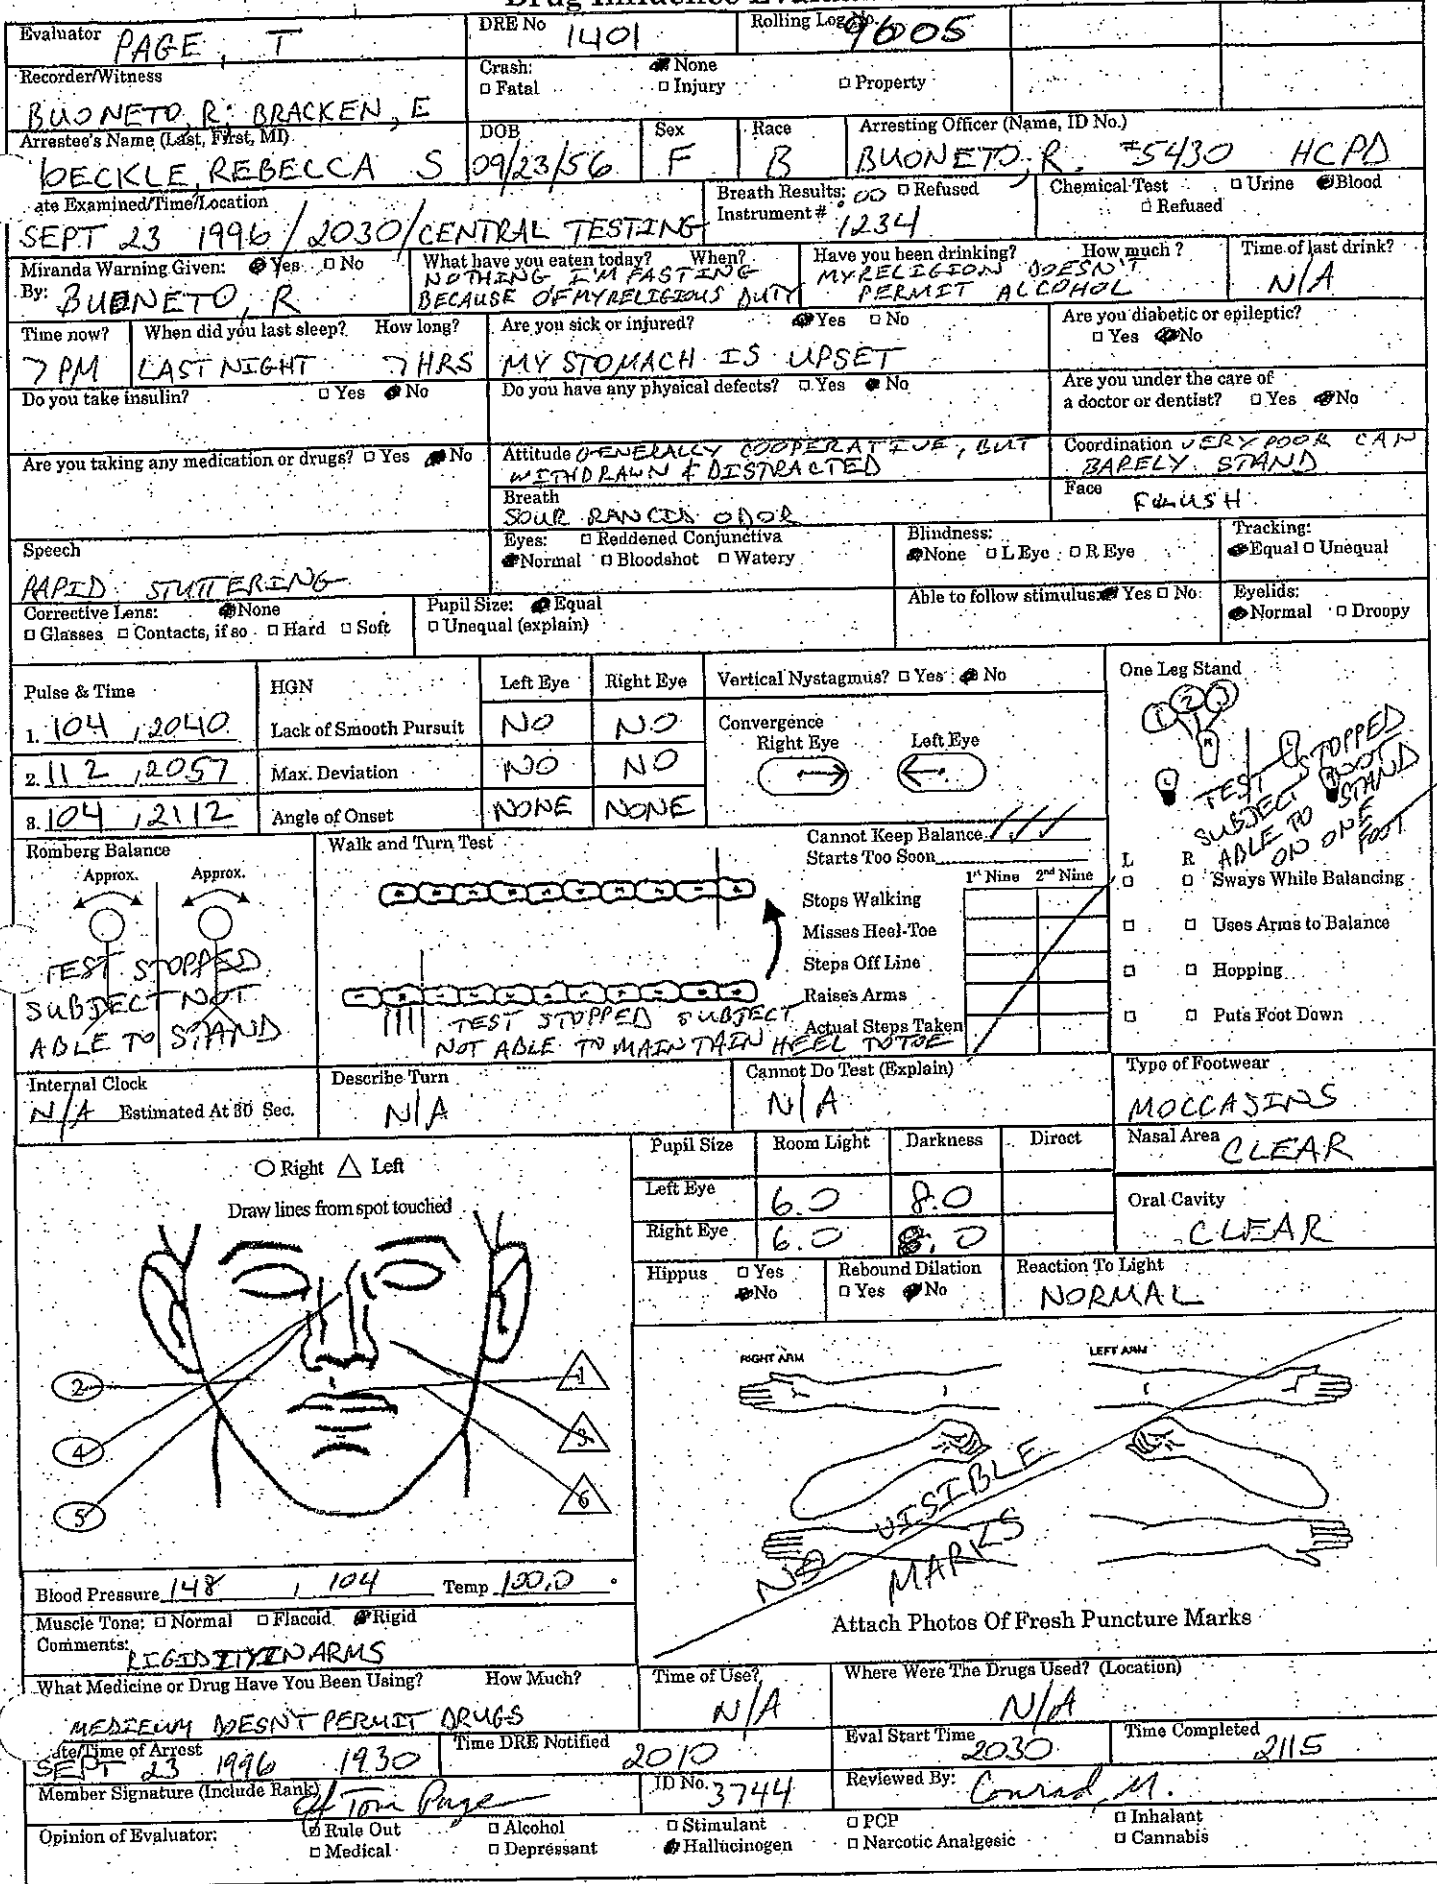 Evaluator PAGE, T
DRE No 1401
Rolling Log No. 9605
Recorder/Witness
BUONETO, R: BRACKEN, E
Crash: None
□ Fatal □ Injury □ Property
Arrestee's Name (Last, First, MI)
BECKLE, REBECCA S
DOB
09/23/56
Sex
F
Race
B
Arresting Officer (Name, ID No.)
BUONETO, R. #5430 HCPD
ate Examined/Time/Location
SEPT 23 1996 / 2030 / CENTRAL TESTING
Breath Results: 00 □ Refused
Instrument # 1234
Chemical Test □ Urine Blood
□ Refused
Miranda Warning Given: Yes □ No
By: BUONETO, R
What have you eaten today? When?
NOTHING I'M FASTING
BECAUSE OF MY RELIGIOUS DUTY
Have you been drinking? How much?
MY RELIGION DOESN'T
PERMIT ALCOHOL
Time of last drink?
N/A
Time now?
7 PM
When did you last sleep? How long?
LAST NIGHT 7 HRS
Are you sick or injured? Yes □ No
MY STOMACH IS UPSET
Are you diabetic or epileptic?
□ Yes No
Do you take insulin? □ Yes No
Do you have any physical defects? □ Yes No
Are you under the care of
a doctor or dentist? □ Yes No
Are you taking any medication or drugs? □ Yes No
Attitude GENERALLY COOPERATIVE, BUT
WITHDRAWN & DISTRACTED
Coordination VERY POOR CAN
BARELY STAND
Breath
SOUR RANCID ODOR
Face
FLUSH
Speech
RAPID STUTTERING
Eyes: □ Reddened Conjunctiva
Normal □ Bloodshot □ Watery
Blindness:
None □ L Eye □ R Eye
Tracking:
Equal □ Unequal
Corrective Lens: None
□ Glasses □ Contacts, if so □ Hard □ Soft
Pupil Size: Equal
□ Unequal (explain)
Able to follow stimulus: Yes □ No:
Eyelids:
Normal □ Droopy
Pulse & Time
1. 104 , 2040
2. 112 , 2057
3. 104 , 2112
HGN Left Eye Right Eye
Lack of Smooth Pursuit NO NO
Max. Deviation NO NO
Angle of Onset NONE NONE
Vertical Nystagmus? □ Yes No
Convergence
Right Eye Left Eye
One Leg Stand
1 2 3
R
L
TEST STOPPED
SUBJECT NOT
ABLE TO STAND
ON ONE
FOOT
L R
□ □ Sways While Balancing
□ □ Uses Arms to Balance
□ □ Hopping
□ □ Puts Foot Down
Romberg Balance
Approx. Approx.
TEST STOPPED
SUBJECT NOT
ABLE TO STAND
Walk and Turn Test
TEST STOPPED SUBJECT
NOT ABLE TO MAINTAIN HEEL TO TOE
Cannot Keep Balance ///
Starts Too Soon
1st Nine 2nd Nine
Stops Walking
Misses Heel-Toe
Steps Off Line
Raises Arms
Actual Steps Taken
Internal Clock
N/A Estimated At 30 Sec.
Describe Turn
N/A
Cannot Do Test (Explain)
N/A
Type of Footwear
MOCCASINS
○ Right △ Left
Draw lines from spot touched
2
4
5
1
3
6
Pupil Size Room Light Darkness Direct
Left Eye 6.0 8.0
Right Eye 6.0 8.0
Nasal Area CLEAR
Oral Cavity
CLEAR
Hippus □ Yes
No
Rebound Dilation
□ Yes No
Reaction To Light
NORMAL
RIGHT ARM
LEFT ARM
NO VISIBLE
MARKS
Attach Photos Of Fresh Puncture Marks
Blood Pressure 148 / 104 Temp 100.0 °
Muscle Tone: □ Normal □ Flaccid Rigid
Comments:
RIGIDITY IN ARMS
What Medicine or Drug Have You Been Using? How Much?
DOESN'T PERMIT DRUGS
Time of Use?
N/A
Where Were The Drugs Used? (Location)
N/A
ate/Time of Arrest
SEPT 23 1996 1930
Time DRE Notified
2010
Eval Start Time
2030
Time Completed
2115
Member Signature (Include Rank)
Off Tom Page
ID No. 3744
Reviewed By: Conrad, M.
Opinion of Evaluator:
Rule Out □ Alcohol □ Stimulant □ PCP □ Inhalant
□ Medical □ Depressant Hallucinogen □ Narcotic Analgesic □ Cannabis